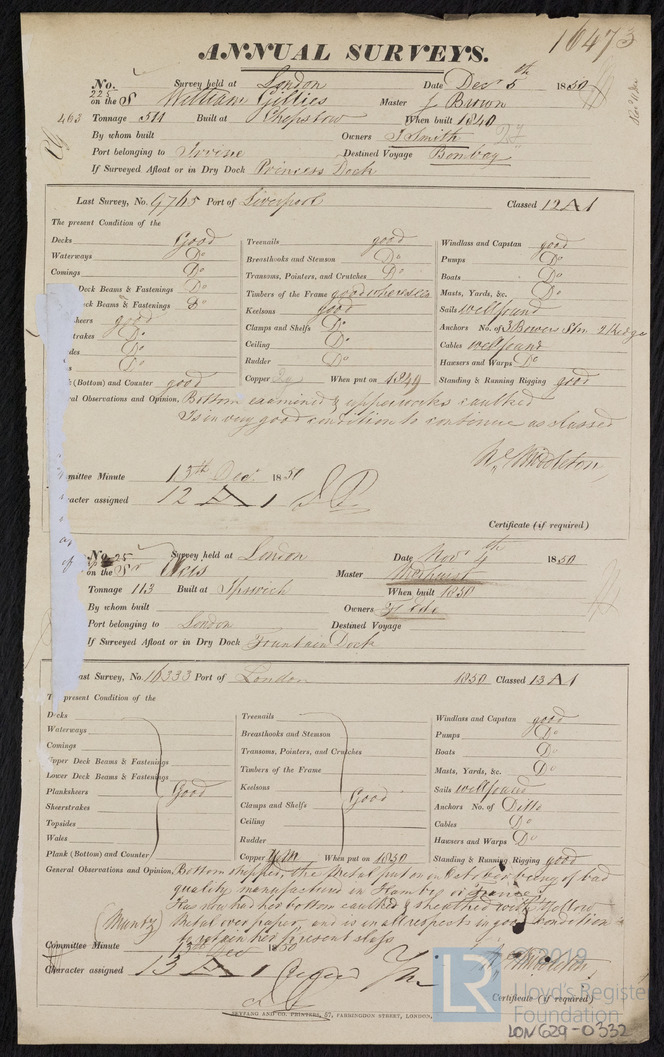 16473
ANNUAL SURVEYS.
No. 225 Survey held at London Date Decr 5th 1850
on the S William Gillies Master J Brown
463 Tonnage 511 Built at Chepstow When built 1840
By whom built Owners J Smith
Port belonging to Irvine Destined Voyage Bombay
If Surveyed Afloat or in Dry Dock Princess Dock
Last Survey, No. 9765 Port of Liverpool Classed 12 A 1
The present Condition of the
Decks Good
Waterways Do
Comings Do
Deck Beams & Fastenings Do
eck Beams & Fastenings Do
heers good
trakes Do
des Do
s Do
k (Bottom) and Counter good
Treenails good
Breasthooks and Stemson Do
Transoms, Pointers, and Crutches Do
Timbers of the Frame good where seen
Keelsons good
Clamps and Shelfs Do
Ceiling Do
Rudder Do
Copper When put on 1849
Windlass and Capstan good
Pumps Do
Boats Do
Masts, Yards, &c. Do
Sails well found
Anchors No. of 3 Bower 1 Stm 2 Kedge
Cables well found
Hawsers and Warps Do
Standing & Running Rigging good
ral Observations and Opinion, Bottom examined & upperworks caulked
Is in very good condition to continue as classed
Wm Middleton
mmittee Minute 13th Decr 1850
racter assigned 12 A 1
Certificate (if required)
No. 25 Survey held at London Date Novr 4th 1850
on the Sr Master Medhurst
Tonnage 113 Built at Ipswich When built 1850
By whom built Owners
Port belonging to London Destined Voyage
If Surveyed Afloat or in Dry Dock Fountain Dock
ast Survey, No. 16333 Port of London 1850 Classed 13 A 1
T present Condition of the
Decks
Waterways
Comings
Upper Deck Beams & Fastenings
Lower Deck Beams & Fastenings
Planksheers Good
Sheerstrakes
Topsides
Wales
Plank (Bottom) and Counter
Treenails
Breasthooks and Stemson
Transoms, Pointers, and Crutches
Timbers of the Frame
Keelsons
Clamps and Shelfs Good
Ceiling
Rudder
Copper When put on 1850
Windlass and Capstan good
Pumps Do
Boats Do
Masts, Yards, &c. Do
Sails well found
Anchors No. of Ditto
Cables Do
Hawsers and Warps Do
Standing & Running Rigging good
General Observations and Opinion, Bottom stripped, the Metal put on last being of bad
quality manufactured in Hambro or France.
Has now had her bottom caulked & sheathed with Yellow
(Muntz) Metal over paper, and is in all respects in good condition
to retain her present class
Committee Minute 13th Dec 1850
Character assigned 13 A 1
Wm Middleton
Certificate (if required)
SEYFANG AND CO. PRINTERS, 57, FARRINGDON STREET, LONDON.
© 2019
LR
Lloyd's Register
Foundation
LON629-0332